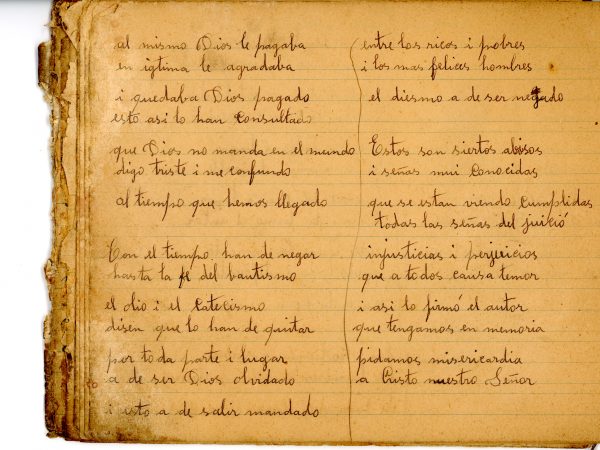 al mismo Dios le pagaba
en igtima le agradaba
i quedaba Dios pagado
esto asi lo han consultado
que Dios no manda en el mundo
digo triste i me confundo
al tiempo que hemos llegado
Con el tiempo han de negar
hasta la fé del bautismo
el dio i el catecismo
disen que lo han de quitar
por toda parte i lugar
a de ser Dios olvidado
i esto a de salir mandado
entre los ricos i pobres
i los mas felices hombres
el diesmo a de ser negado
Estos son siertos abisos
i señas mui conocidas
que se estan viendo cumplidas
todas las señas del juició
injusticias i perjuicios
que a todos causa temor
i asi lo firmó el autor
que tengamos en memoria
pidamos misericardia
a Cristo nuestro Señor